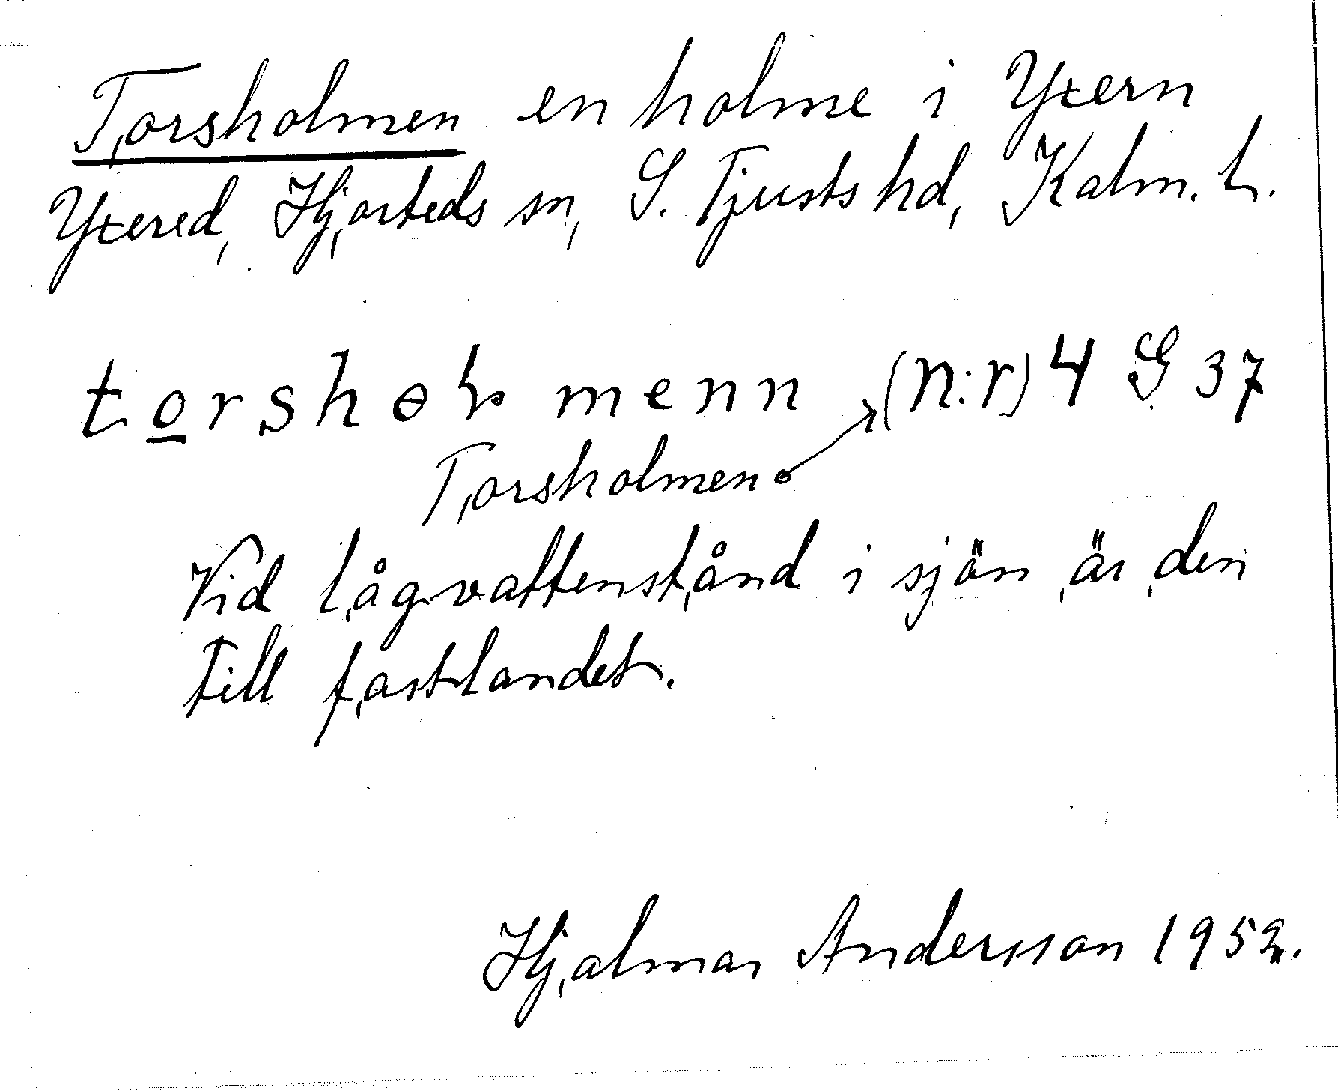 Torsholmen en holme i Yxern
Yxered, Hjorteds sn, S. Tjusts hd, Kalm. l.
torshɵɫ menn (n:r) 4 G 37
Torsholmen
Vid lågvattenstånd i sjön är den
till fastlandet.
Hjalmar Andersson 1952.